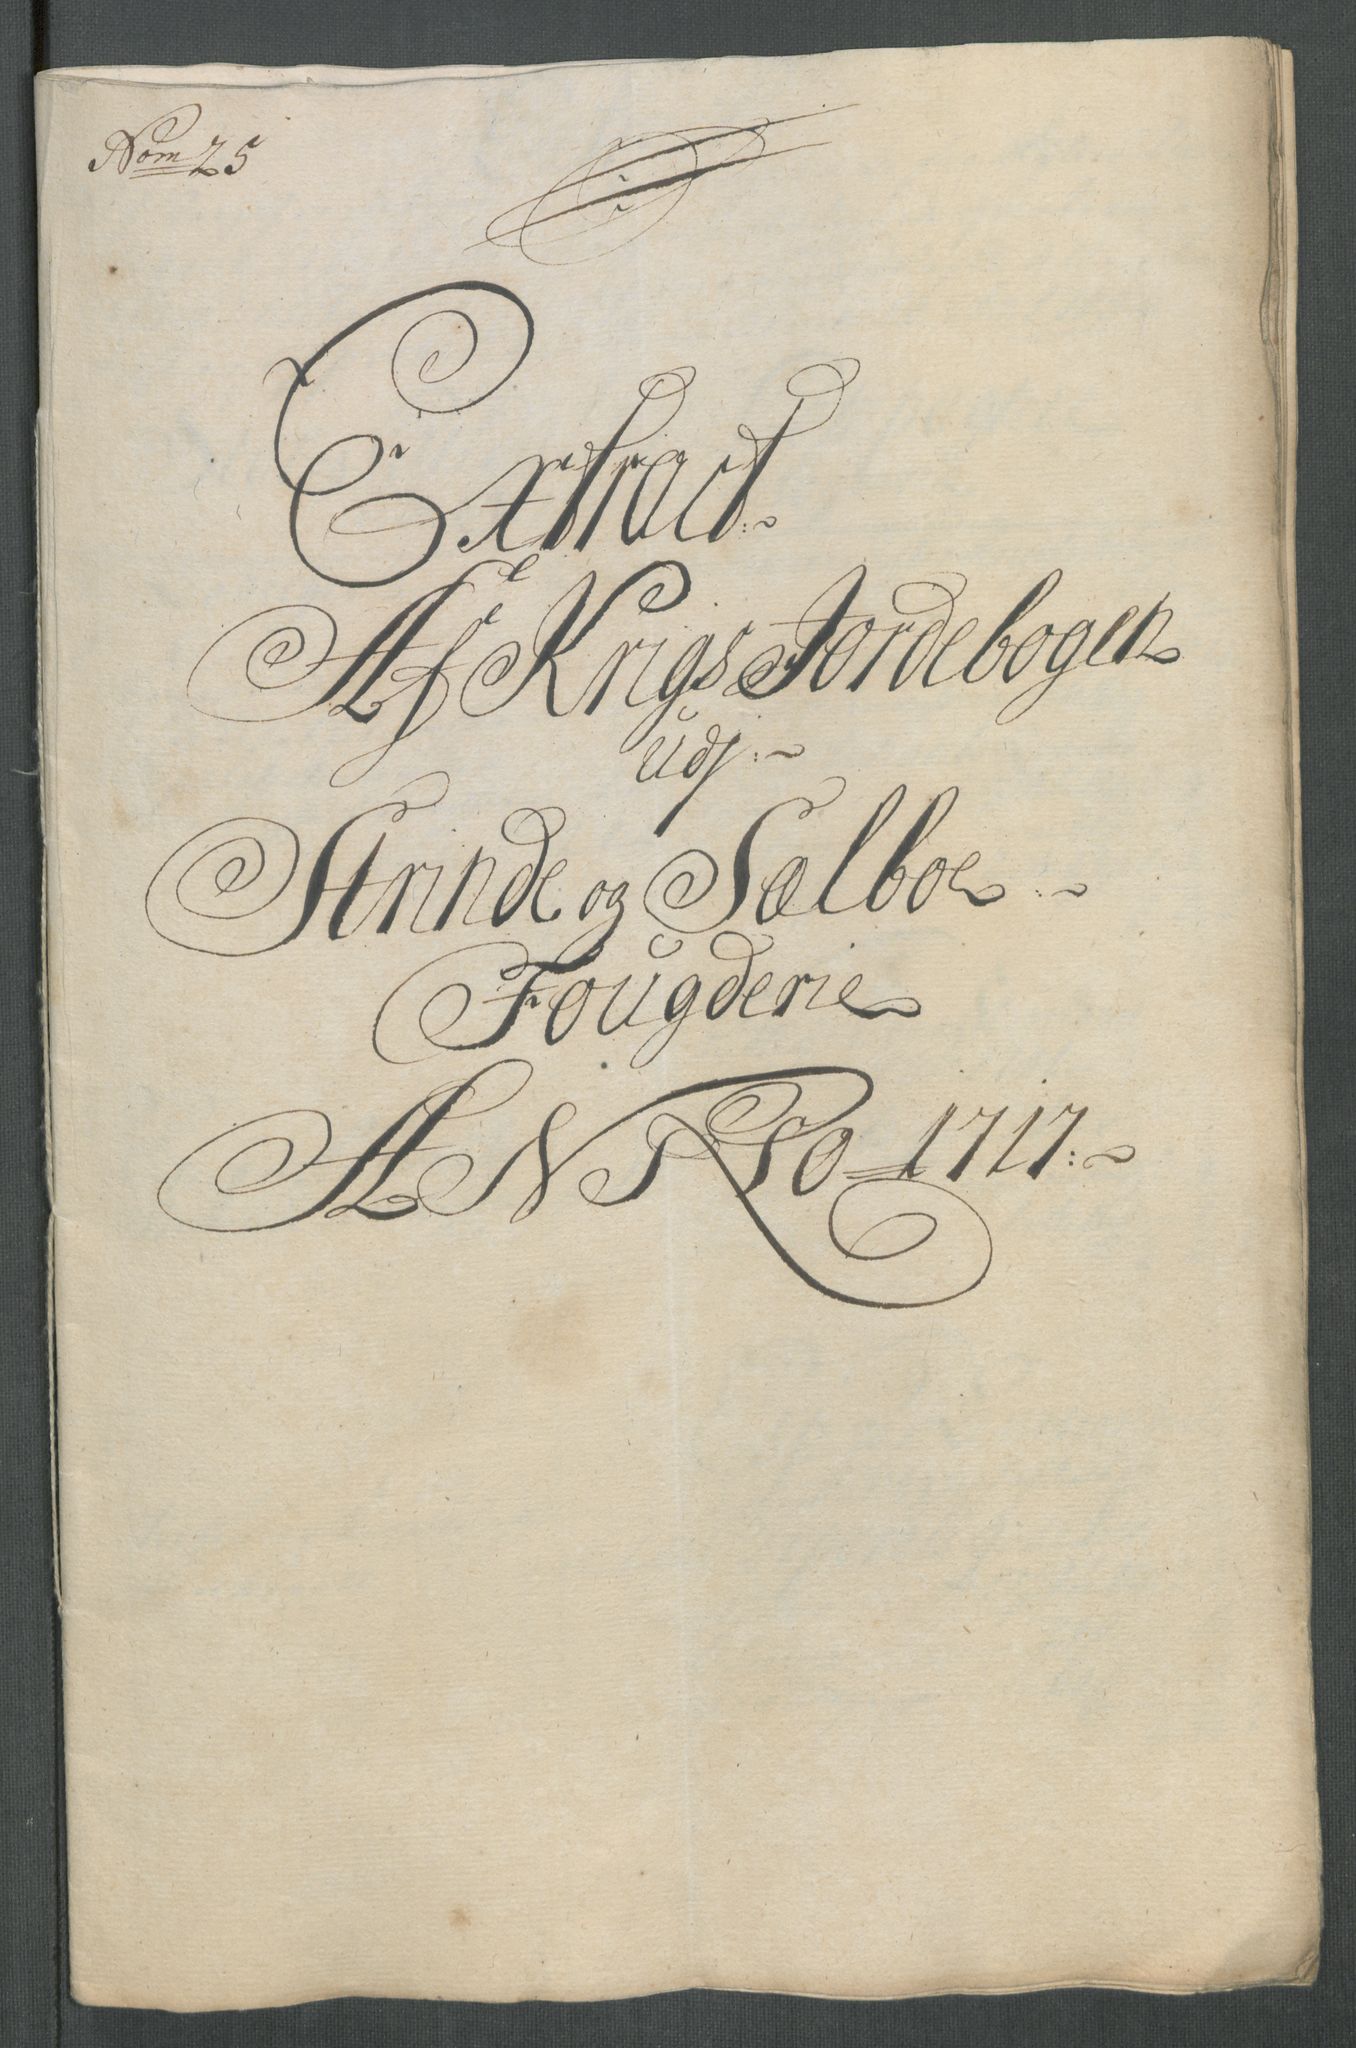 Nom 25
Extract
Af Krigs Jordebogen
udj
Strinde og Sælboe
Fougderie
ANNO 1717